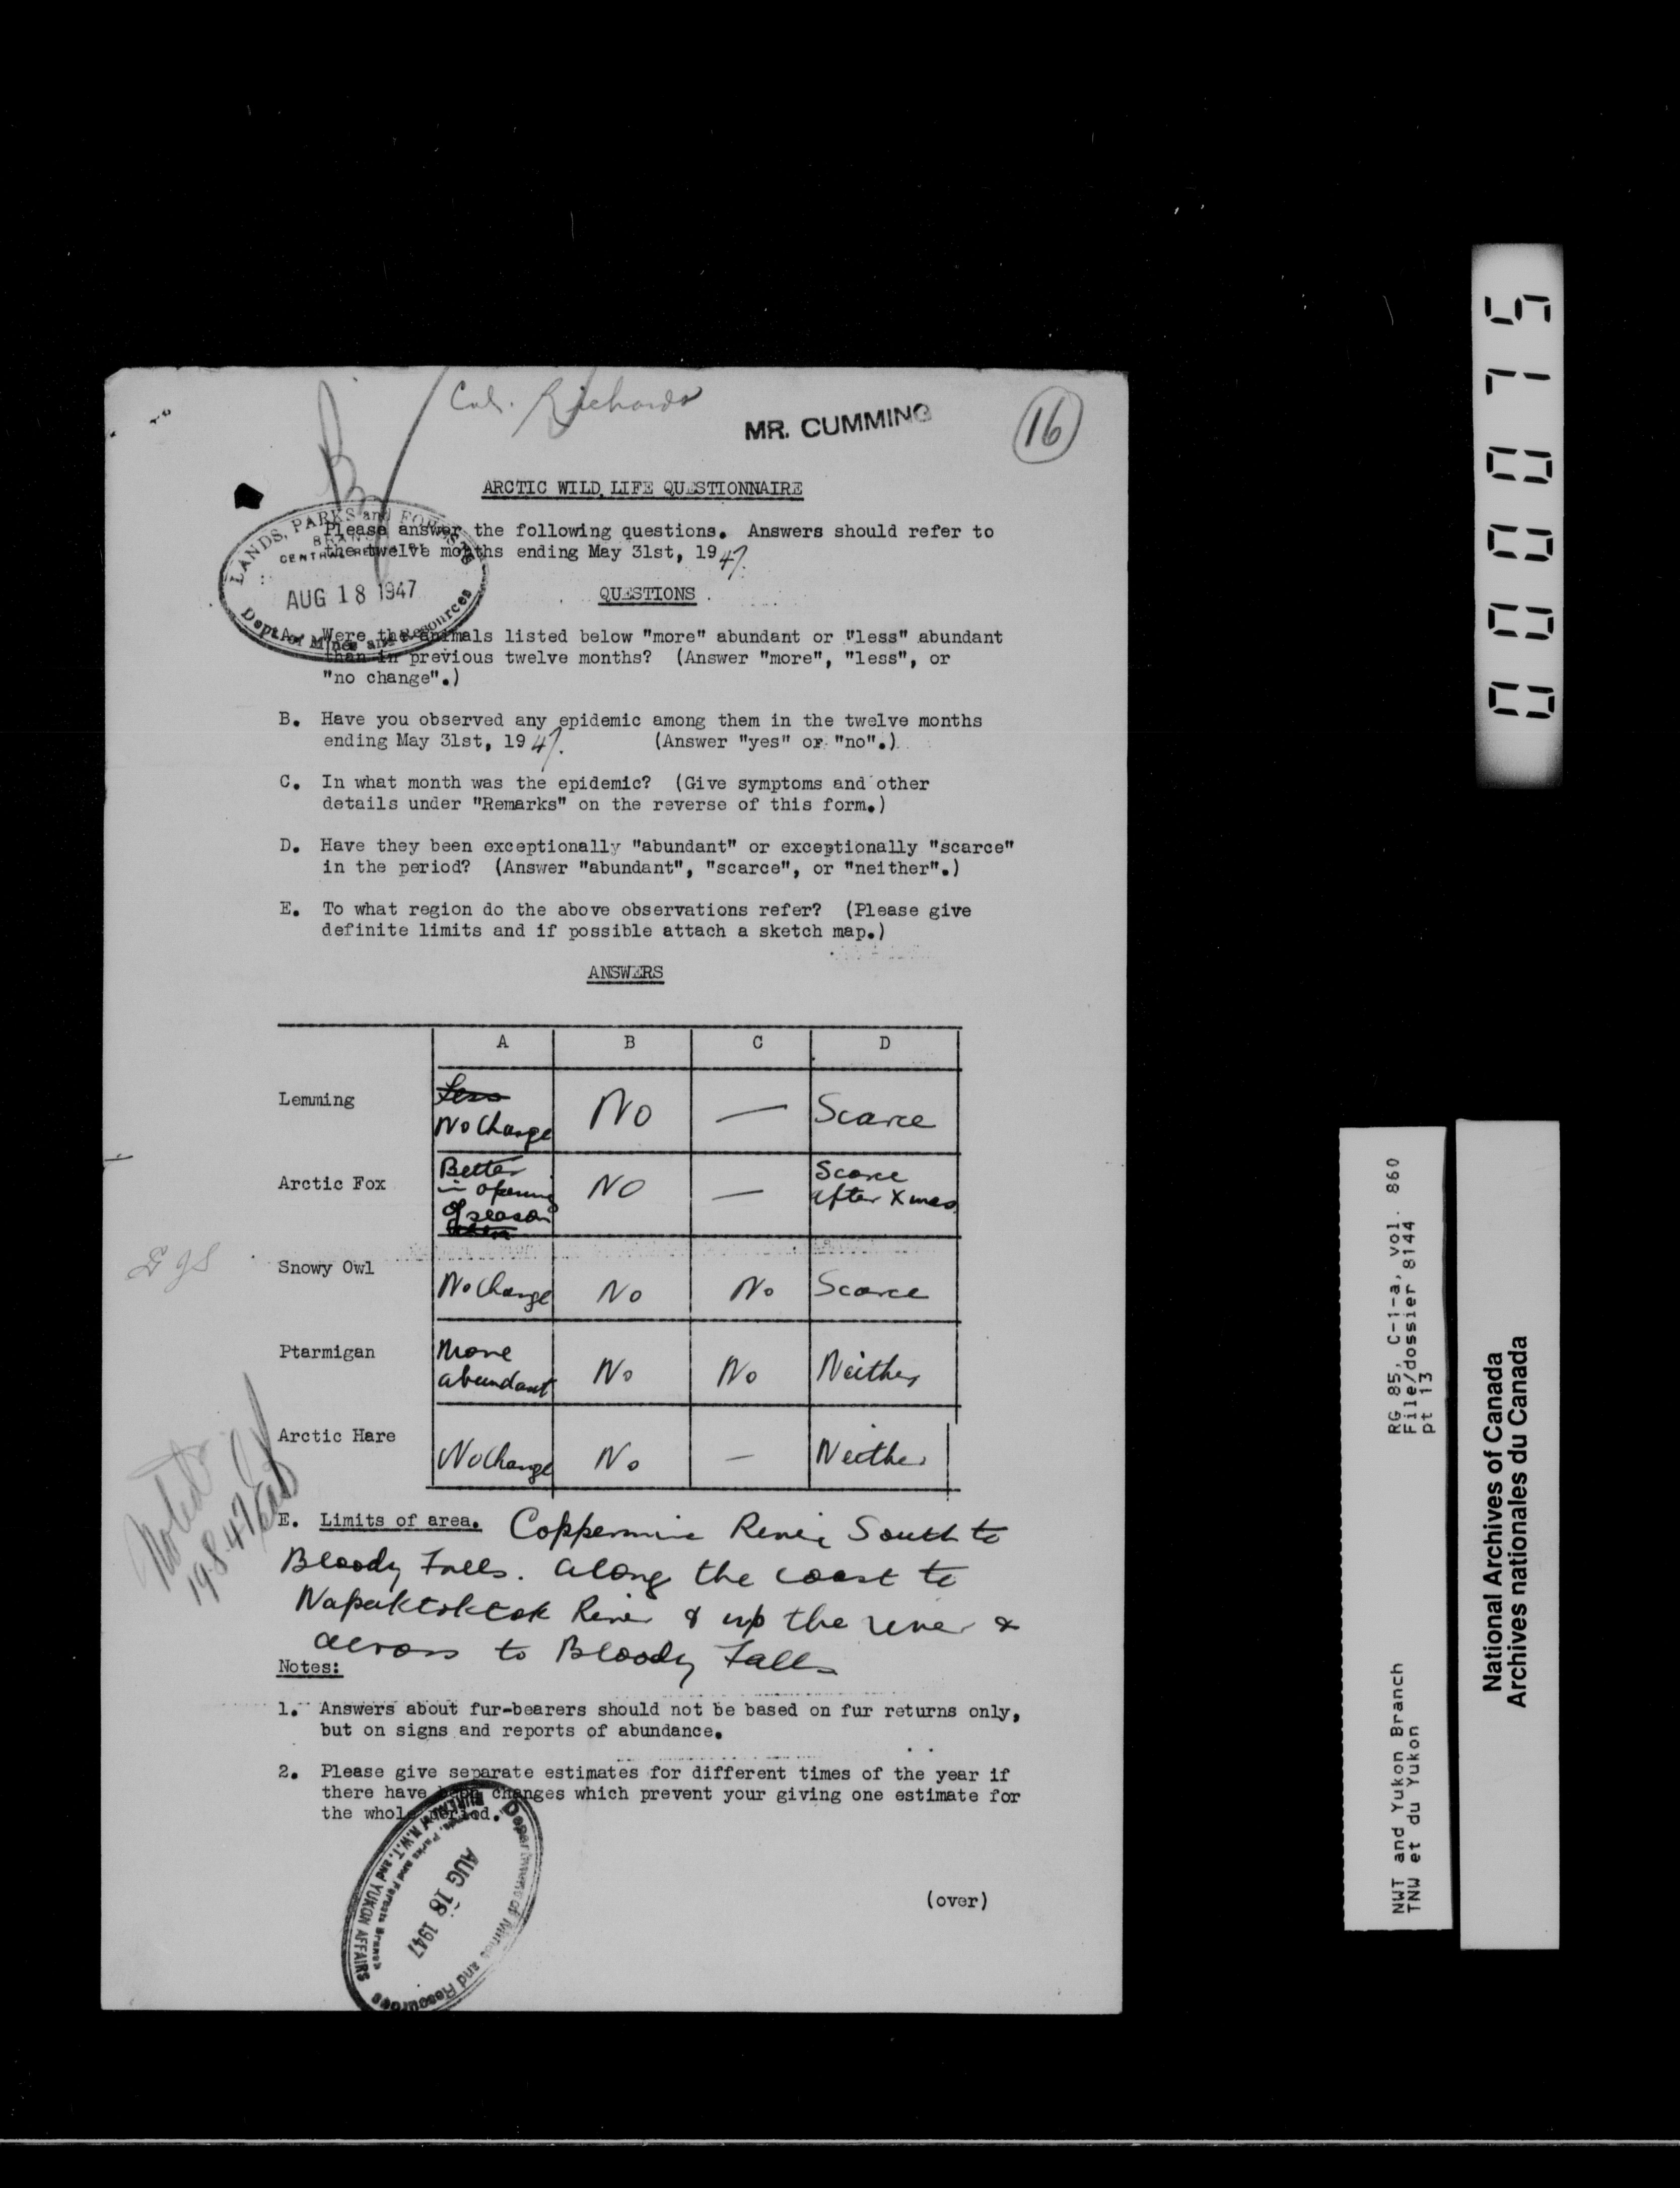 Richards
MR. CUMMING
16
ARCTIC WILD LIFE QUESTIONNAIRE
LANDS, PARKS and FORESTS
BRANCH
AUG 18 1947
Dept. of Mines and Resources
Please answer the following questions. Answers should refer to
the twelve months ending May 31st, 1947.
QUESTIONS
A. Were the animals listed below "more" abundant or "less" abundant
than in previous twelve months? (Answer "more", "less", or
"no change".)
B. Have you observed any epidemic among them in the twelve months
ending May 31st, 1947. (Answer "yes" or "no".)
C. In what month was the epidemic? (Give symptoms and other
details under "Remarks" on the reverse of this form.)
D. Have they been exceptionally "abundant" or exceptionally "scarce"
in the period? (Answer "abundant", "scarce", or "neither".)
E. To what region do the above observations refer? (Please give
definite limits and if possible attach a sketch map.)
ANSWERS
A B C D
Lemming Less No Change No — Scarce
Arctic Fox Better in opening of season No — Scarce after Xmas
Snowy Owl No Change No No Scarce
Ptarmigan More abundant No No Neither
Arctic Hare No Change No — Neither
Noted
19-8-47
E. Limits of area. Coppermine River South to
Bloody Falls. along the coast to
Napaktoktok River & up the river &
across to Bloody Falls
Notes:
1. Answers about fur-bearers should not be based on fur returns only,
but on signs and reports of abundance.
2. Please give separate estimates for different times of the year if
there have been changes which prevent your giving one estimate for
the whole period.
Department of Mines and Resources
AUG 18 1947
Lands, Parks and Forests Branch
BUREAU of N.W.T. and YUKON AFFAIRS
(over)
000075
RG 85, C-1-a, vol. 860
File/dossier 8144
pt 13
NWT and Yukon Branch
TNW et du Yukon
National Archives of Canada
Archives nationales du Canada